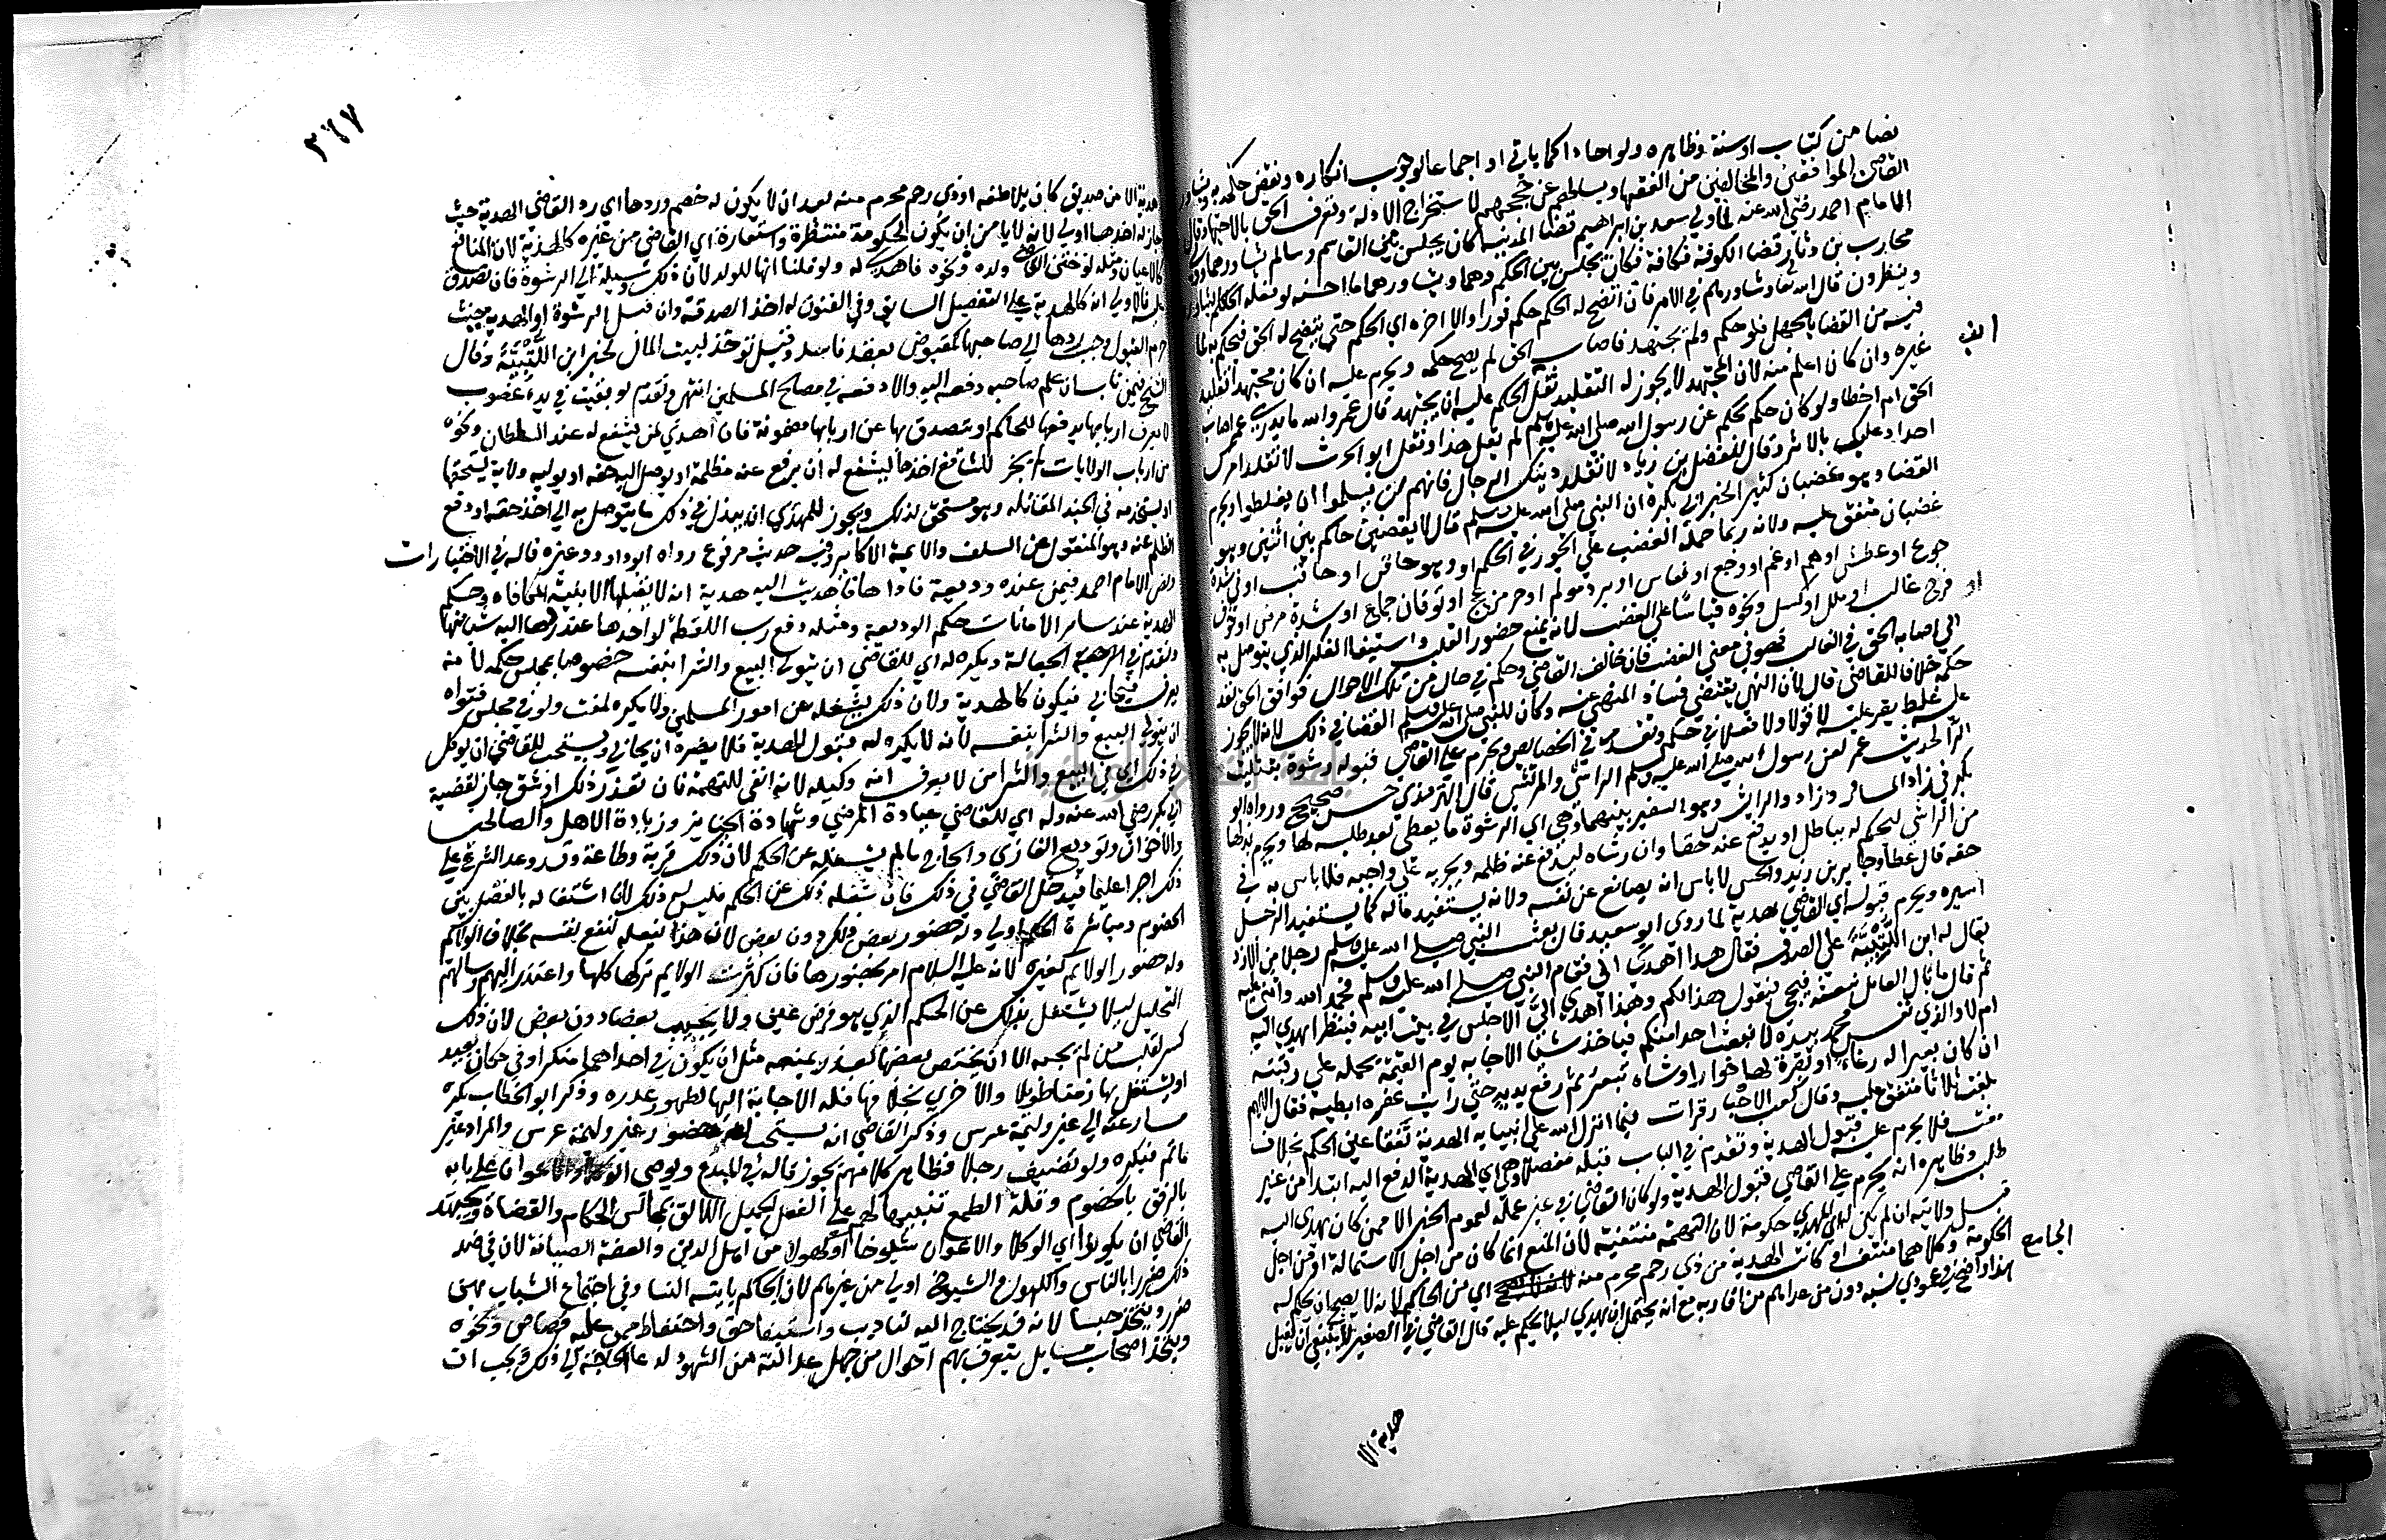 نصا من كتاب او سنة وظاهره ولو احادا كما ياتي او اجماعا لوجوب انكاره ونقض حكمه به ويشاور
القاضي الموافقين والمخالفين من الفقها ويسالهم عن حججهم لاستخراج الادلة وتعرف الحق بالاجتهاد قال
الامام احمد رضي الله عنه لما ولي سعد بن ابراهيم قضا المدينة كان يجلس بين القاسم وسالم يشاورهما وولي
محارب بن دثار قضا الكوفة فكان يجلس بين الحكم وحماد ويشاورهما ما احسنه لو فعله الحكام يشاورون
وينظرون قال الله تعالى وشاورهم في الامر فان اتضح له الحكم حكم فورا والا اخره اي الحكم حتى يتضح له الحق فيحكم به لما
فيه من القضا بالجهل فلو حكم ولم يجتهد فاصاب الحق لم يصح حكمه ويحرم عليه ان كان مجتهدا تقليد
غيره وان كان اعلم منه لان المجتهد لا يجوز له التقليد نقل ابن الحكم عليه ان يجتهد قال عمر والله ما يدري عمر اصاب
الحق ام اخطا ولو كان حكم بحكم عن رسول الله صلى الله عليه وسلم لم يقل هذا ونقل ابو الحرث لا تقلد امرك
احدا وعليك بالاثر وقال للفضل بن زياد لا تقلد دينك الرجال فانهم لن يسلموا ان يغلطوا ويحرم
القضا وهو غضبان كثير الخبر ابي بكرة ان النبي صلى الله عليه وسلم قال لا يقضين حاكم بين اثنين وهو
غضبان متفق عليه ولانه ربما حمله الغضب على الجور في الحكم او وهو حاقن او حاقب او في شدة
جوع او عطش او هم او غم او وجع او نعاس او برد مولم او حر مزعج او توقان جماع او شدة مرض او خوف
او فرح غالب او ملل او كسل ونحوه قياسا على الغضب لانه يمنع حضور القلب واستيفا الفكر الذي يتوصل به
الى اصابة الحق في الغالب فهو في معنى الغضب فان خالف القاضي وحكم في حال من تلك الاحوال فوافق الحق نفذ
حكمه خلافا للقاضي قال لان النهي يقتضي فساد المنهي عنه وكان للنبي صلى الله عليه وسلم القضا في ذلك لانه لا يجوز
عليه غلط يقر عليه لا قولا ولا فعلا في حكم وتقدم في الخصايص ويحرم على القاضي قبوله رشوة بتثليث
الرا لحديث عمر لعن رسول الله صلى الله عليه وسلم الراشي والمرتشي قال الترمذي حسن صحيح ورواه ابو
بكر في زاد المسافر وزاد والرايش وهو السفير بينهما وهي اي الرشوة ما يعطى بعد طلبه لها ويحرم بذلها
من الراشي ليحكم له بباطل او يدفع عنه حقا وان رشاه ليدفع عنه ظلمه ويجريه على واجبه فلا باس به في
حقه قال عطا وجابر بن زيد والحسن لا باس ان يصانع عن نفسه ولانه يستفيد ماله كما يستفيد الرجل
اسيره ويحرم قبوله اي القاضي هدية لما روى ابو سعيد قال بعث النبي صلى الله عليه وسلم رجلا من الازد
يقال له ابن اللتبية على الصدقة فقال هذا اهدي الي فقام النبي صلى الله عليه وسلم فحمد الله واثنى عليه
ثم قال ما بال العامل نبعثه فيجي فيقول هذا لكم وهذا اهدي الي الا جلس في بيت ابيه فينظر ايهدى اليه
ام لا والذي نفس محمد بيده لا نبعث احدا منكم فياخذ شيئا الا جا به يوم القيمة يحمله على رقبته
ان كان بعيرا له رغاء او بقرة لها خوار او شاه تيعر ثم رفع يديه حتى رايت عفرة ابطيه فقال اللهم
بلغت ثلاثا متفق عليه وقال كعب الاحبار قرات فيما انزل الله على انبيايه الهدية تفقأ عين الحكم بخلاف
مفت فلا يحرم عليه قبول الهدية وتقدم في الباب قبله مفصلا وهي اي الهدية الدفع اليه ابتدا من غير
طلب وظاهره انه يحرم على القاضي قبول الهدية ولو كان القاضي في غير عمله لعموم الخبر الا ممن كان يهدي اليه
قبل ولايته ان لم يكن للمهدي حكومة لان التهمة منتفية لان المنع انما كان من اجل الاستمالة او من اجل
الحكومة وكلاهما منتف او كانت الهدية من ذي رحم محرم منه اي من الحاكم لانه لا يصح ان يحكم له
هذا واضح في عمودي نسبه دون من عداهم من اقاربه مع انه يحتمل ان يهدي ليلا يحكم عليه قال القاضي في الجامع الصغير لا ينبغي ان يقبل
هدية الا
٣٦٧
هدية الا من صديق كان يلاطفه او ذي رحم محرم منه بعد ان لا يكون له خصم وردها اي رد القاضي الهدية حيث
جاز له اخذها اولى لانه لا يامن ان يكون لحكومة منتظرة واستعارة اي القاضي من غيره كالهدية لان المنافع
كالاعيان ومثله لو ختن القاضي ولده ونحوه فاهدي له ولو قلنا انها للولد لان ذلك وسيلة الى الرشوة فان تصدق
عليه فالاولى انه كالهدية على التفصيل السابق وفي الفنون له اخذ الصدقة وان قبل الرشوة او الهدية حيث
حرم القبول وجب ردها الى صاحبها كمقبوض بعقد فاسد وقيل توخذ لبيت المال لخبر ابن اللتبية وقال
الشيخ فيمن تاب ان علم صاحبه دفعه اليه والا دفعه في مصالح المسلمين انتهى وتقدم لو بقيت في يده غصوب
لا يعرف اربابها يدفعها للحاكم او يتصدق بها عن اربابها مضمونة فان اهدى لمن يشفع له عند السلطان ونحوه
من ارباب الولايات لم يجز للشافع اخذها ليشفع له ان يرفع عنه مظلمة او يوصل اليه حقه او يوليه ولاية يستحقها
او يستخدمه في الجند المقاتله وهو مستحق لذلك ويجوز للمهدي ان يبذل في ذلك ما يتوصل به الى اخذ حقه او دفع
الظلم عنه وهو المنقول عن السلف والايمة الاكابر وفيه حديث مرفوع رواه ابو داود وغيره قاله في الاختيارات
ونص الامام احمد فيمن عنده وديعة فاداها فاهديت اليه هدية انه لا يقبلها الا بنية المكافاه وحكم
الهدية عند ساير الامانات حكم الوديعة ومثله دفع رب اللقطة لواجدها عند ردها اليه شيا منها
وتقدم في الترجمة الجعالة ويكره له اي للقاضي ان يتولى البيع والشرا بنفسه خصوصا بمجلس حكمه لانه
يعرف فيحابى فيكون كالهدية ولان ذلك يشغله عن امور المسلمين ولا يكره لمفت ولو في مجلس فتواه
ان يتولى البيع والشرا بنفسه لانه لا يكره له قبول الهدية فلا يضره ان يحابى ويستحب للقاضي ان يوكل
في ذلك اي في البيع والشرا من لا يعرف انه وكيله لانه انفى للتهمة فان تعذر ذلك او شق جاز لقضية
ابي بكر رضي الله عنه وله اي للقاضي عيادة المرضى وشهادة الجنايز وزيارة الاهل والصالحين
والاخوان وتوديع الغازي والحاج ما لم يشغله عن الحكم لان ذلك قربة وطاعة وقد وعد الشرع على
ذلك اجرا عظيما فيدخل القاضي في ذلك فان شغله ذلك عن الحكم فليس له ذلك لان اشتغاله بالفصل بين
الخصوم ومباشرة الحكم اولى وله حضور بعض ذلك دون بعض لان هذا يفعله لنفع نفسه بخلاف الولايم
وله حضور الولايم كغيره لانه عليه السلام امر بحضورها فان كثرت الولايم تركها كلها واعتذر اليهم وسالهم
التحليل ليلا يشتغل بذلك عن الحكم الذي هو فرض عين ولا يجيب بعضا دون بعض لان ذلك
كسر لقلب من لم يجبه الا ان يختص بعضها بعذر يمنعه مثل ان يكون في احداهما منكر او في مكان بعيد
او يشتغل بها زمنا طويلا والاخرى بخلافها فله الاجابة اليها لظهور عذره وذكر ابو الخطاب يكره
مسارعته الى غير وليمة عرس وذكر القاضي انه يستحب له حضور غير وليمة عرس والمراد غير
ماتم فيكره ولو تضيف رجلا فظاهر كلامهم يجوز قاله في المبدع ويوصي الوكلا والاعوان على بابه
بالرفق بالخصوم وقلة الطمع تنبيها لهم على الفعل الجميل اللائق بمجالس الحكام والقضاة ويجتهد
القاضي ان يكونوا اي الوكلا والاعوان شيوخا او كهولا من اهل الدين والعفة الصيانة لان في ضد
ذلك ضررا بالناس والكهول والشيوخ اولى من غيرهم لان الحاكم ياتيه النسا وفي اجتماع الشباب بهن
ضرر ويتخذ حبسا لانه قد يحتاج اليه لتاديب واستيفا حق واحتفاظ ممن عليه قصاص ونحوه
ويتخذ اصحاب مسايل يتعرف بهم احوال من جهل عدالته من الشهود له عا الحاجة الى ذلك ويجب ان